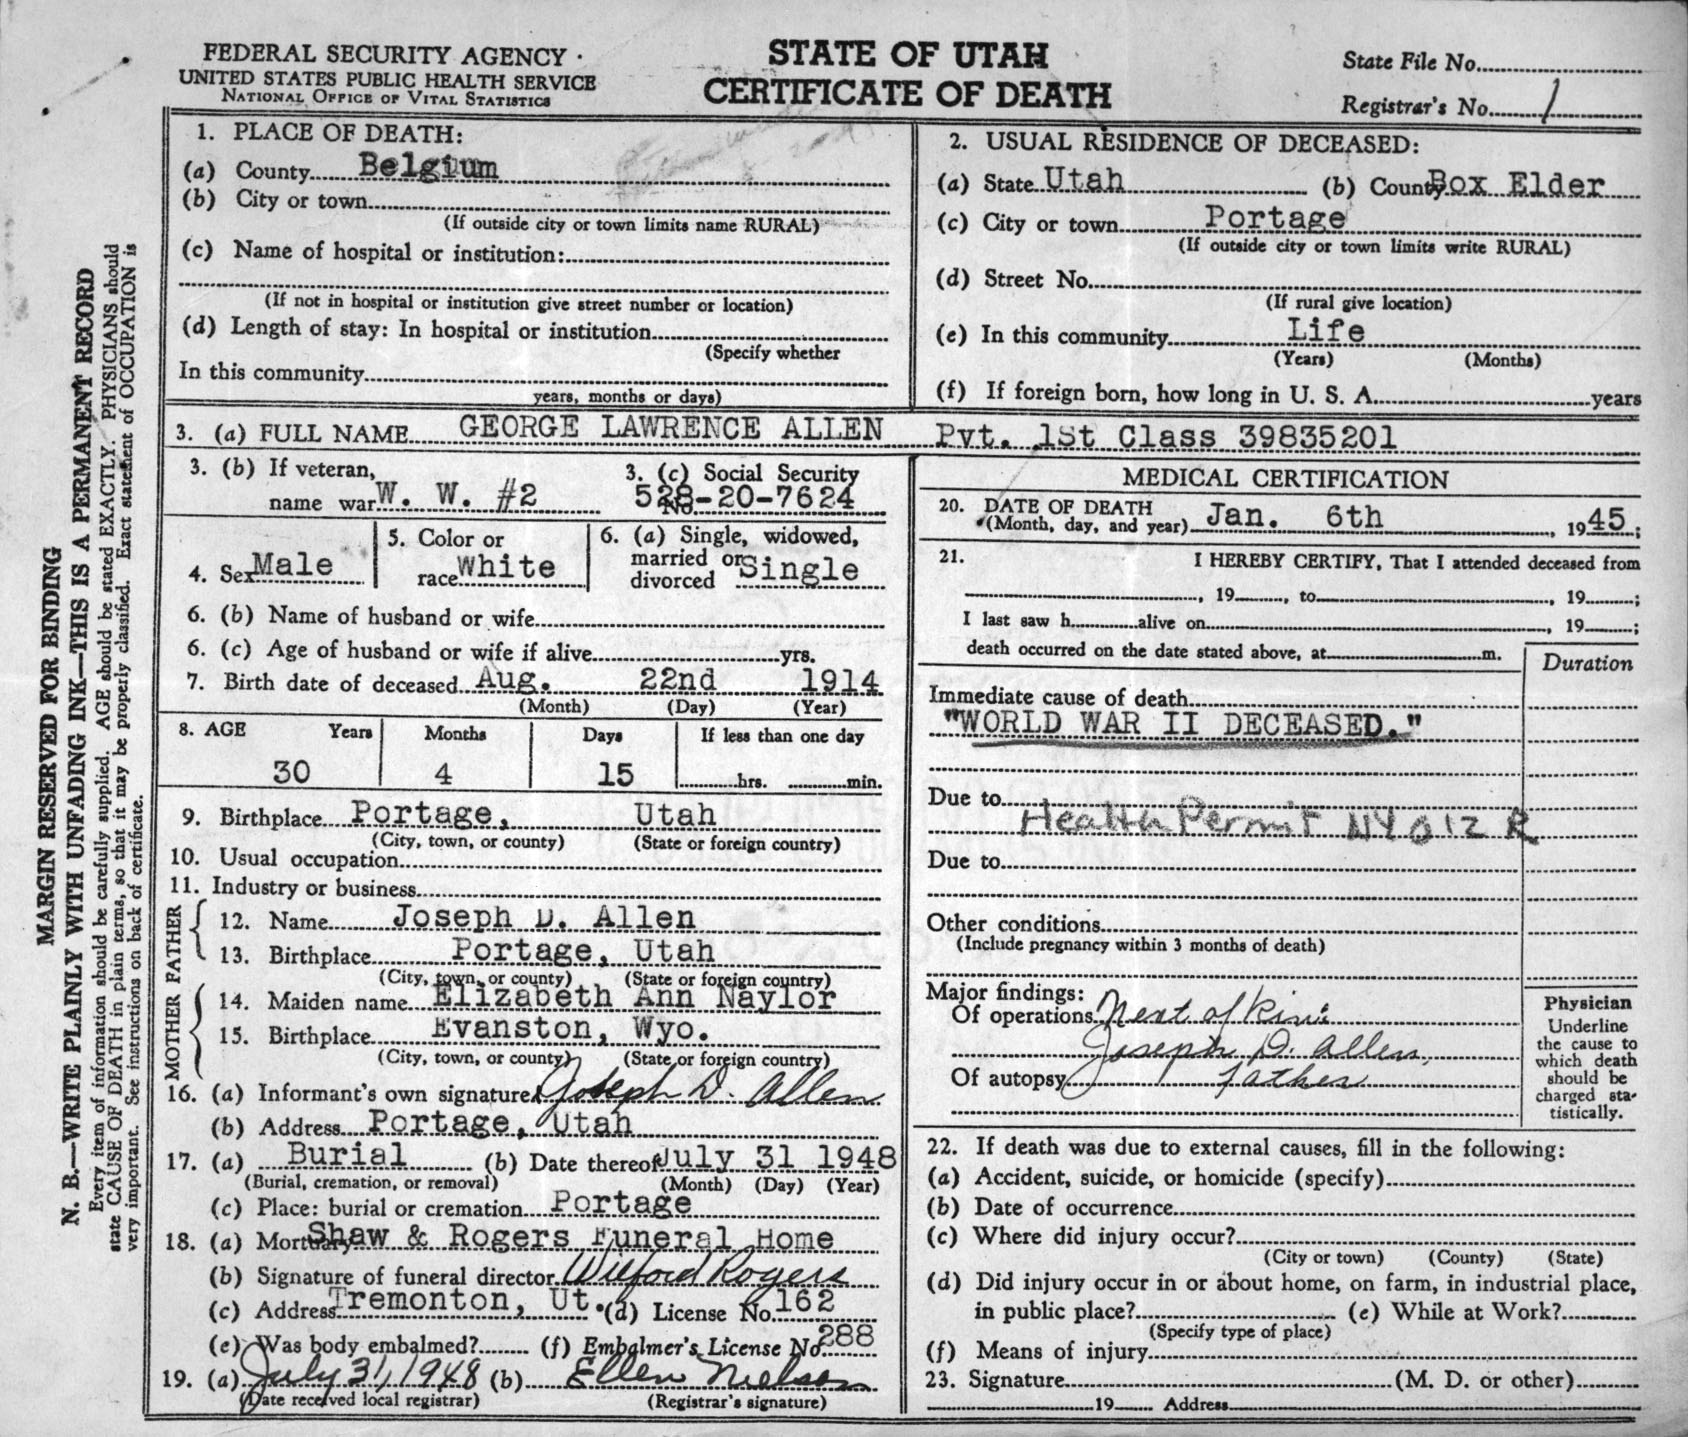 FEDERAL SECURITY AGENCY
UNITED STATES PUBLIC HEALTH SERVICE
NATIONAL OFFICE OF VITAL STATISTICS
STATE OF UTAH
CERTIFICATE OF DEATH
State File No.
Registrar's No. 1
MARGIN RESERVED FOR BINDING
N. B.—WRITE PLAINLY WITH UNFADING INK—THIS IS A PERMANENT RECORD
Every item of information should be carefully supplied. AGE should be stated EXACTLY. PHYSICIANS should
state CAUSE OF DEATH in plain terms, so that it may be properly classified. Exact statement of OCCUPATION is
very important. See instructions on back of certificate.
1. PLACE OF DEATH:
(a) County Belgium
(b) City or town
(If outside city or town limits name RURAL)
(c) Name of hospital or institution:
(If not in hospital or institution give street number or location)
(d) Length of stay: In hospital or institution
(Specify whether
In this community
years, months or days)
2. USUAL RESIDENCE OF DECEASED:
(a) State Utah (b) County Box Elder
(c) City or town Portage
(If outside city or town limits write RURAL)
(d) Street No.
(If rural give location)
(e) In this community Life
(Years) (Months)
(f) If foreign born, how long in U. S. A. years
3. (a) FULL NAME GEORGE LAWRENCE ALLEN Pvt. 1St Class 39835201
3. (b) If veteran,
name war W. W. #2
3. (c) Social Security
No. 528-20-7624
4. Sex Male
5. Color or
race White
6. (a) Single, widowed,
married or
divorced Single
6. (b) Name of husband or wife
6. (c) Age of husband or wife if alive yrs.
7. Birth date of deceased Aug. 22nd 1914
(Month) (Day) (Year)
8. AGE Years Months Days If less than one day
30 4 15 hrs. min.
9. Birthplace Portage, Utah
(City, town, or county) (State or foreign country)
10. Usual occupation
11. Industry or business
FATHER
12. Name Joseph D. Allen
13. Birthplace Portage, Utah
(City, town, or county) (State or foreign country)
MOTHER
14. Maiden name Elizabeth Ann Naylor
15. Birthplace Evanston, Wyo.
(City, town, or county) (State or foreign country)
16. (a) Informant's own signature Joseph D. Allen
(b) Address Portage, Utah
17. (a) Burial (b) Date thereof July 31 1948
(Burial, cremation, or removal) (Month) (Day) (Year)
(c) Place: burial or cremation Portage
18. (a) Mortuary Shaw & Rogers Funeral Home
(b) Signature of funeral director Wilford Rogers
(c) Address Tremonton, Ut. (d) License No. 162
(e) Was body embalmed? (f) Embalmer's License No. 288
19. (a) July 31, 1948 (b) Ellen Nielsen
(Date received local registrar) (Registrar's signature)
MEDICAL CERTIFICATION
20. DATE OF DEATH
(Month, day, and year) Jan. 6th 1945;
21. I HEREBY CERTIFY, That I attended deceased from
, 19 , to , 19 ;
I last saw h alive on , 19 ;
death occurred on the date stated above, at m.
Duration
Immediate cause of death
"WORLD WAR II DECEASED."
Due to
Health Permit NY 012 R
Due to
Other conditions
(Include pregnancy within 3 months of death)
Major findings:
Of operations Next of kin:
Joseph D. Allen,
Of autopsy father
Physician
Underline
the cause to
which death
should be
charged sta-
tistically.
22. If death was due to external causes, fill in the following:
(a) Accident, suicide, or homicide (specify)
(b) Date of occurrence
(c) Where did injury occur?
(City or town) (County) (State)
(d) Did injury occur in or about home, on farm, in industrial place,
in public place? (e) While at Work?
(Specify type of place)
(f) Means of injury
23. Signature (M. D. or other)
19 Address